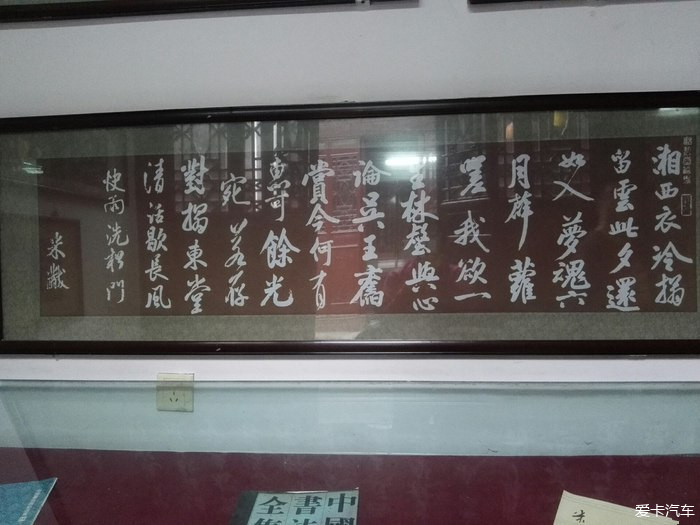 湘西衣冷搨
留雲此夕還
如入夢魂六
月薜蘿
我欲一
林壑與心
論吳王舊
賞今何有
餘光
宛若存
對搨東堂
清話歇長風
快雨洗松門
米黻
中國
書法
全集
米
爱卡汽车